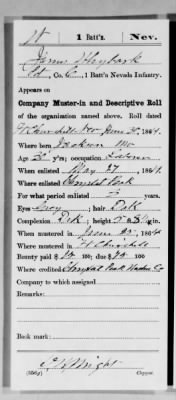 1 Batt'n. Nev.
James
Co. C, 1 Batt'n Nevada Infantry.
Appears on
Company Muster-in and Descriptive Roll
of the organization named above. Roll dated
Ft Churchill Nev June 25, 1864.
Where born Jackson Mo
Age y'rs; occupation Laborer
When enlisted May 27, 1864
Where enlisted
For what period enlisted 3 years.
Eyes Grey; hair Dark
Complexion Dk; height 5 ft. in.
When mustered in June 25, 1864
Where mustered in Ft Churchill
Bounty paid $ 100; due $ 100
Where credited
Company to which assigned
Remarks:
Book mark:
Wright
(356g) Copyist.